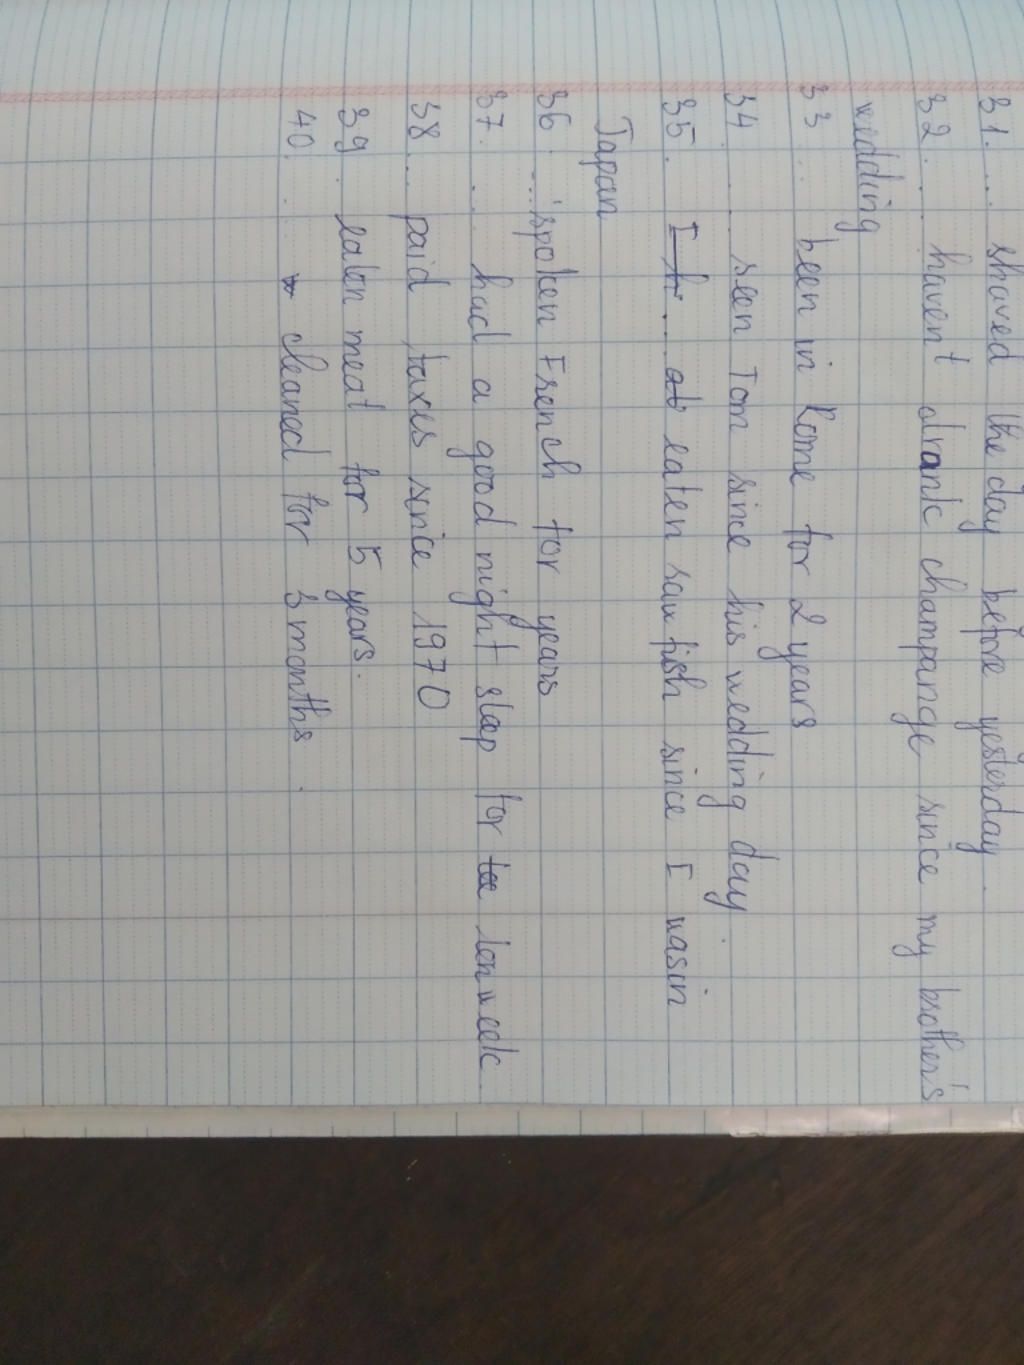 31. ... shaved the day before yesterday.
32. ... haven't drank champange since my brother's
wedding
33 ... been in Rome for 2 years
34 ... seen Tom since his wedding day.
35. I h ... ab eaten raw fish since I was in
Japan
36. ... spoken French for years
37. ... had a good night sleep for ten week.
38 ... paid taxes since 1970
39 . eaten meat for 5 years.
40. ... cleaned for 3 months.